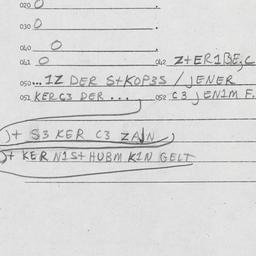 020 O
030 O
040 O
041 O 042 Z+ER1BE,C
050... 1Z DER S+KOP3S / JENER
051 KER C3 DER ... 052 C3 JEN1M F.
)+ S3 KER C3 ZAJN )
)+ KER N1S+ HUBM K1N GELT